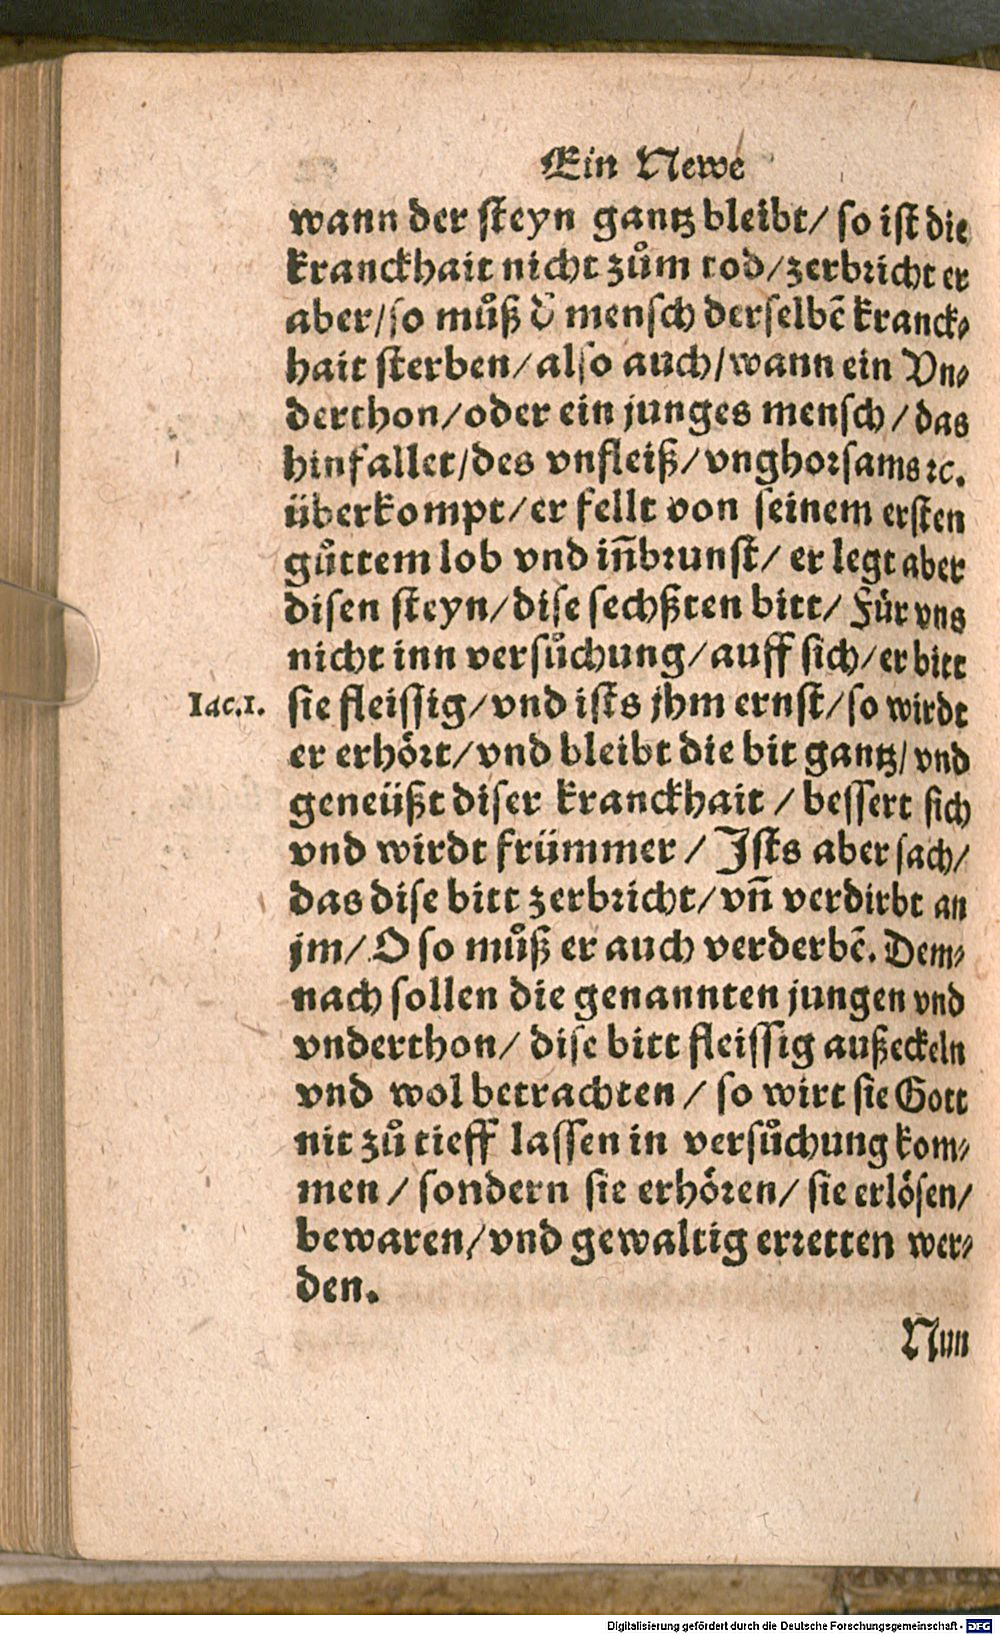 Ein Newe
wann der steyn gantz bleibt/ so ist die
kranckhait nicht zům tod/zerbricht er
aber/so můß d' mensch derselbē kranck⸗
hait sterben/also auch/wann ein Vn⸗
derthon/oder ein junges mensch/das
hinfallet/des vnfleiß/vnghorsams ꝛc.
überkompt/er fellt von seinem ersten
gůttem lob vnd iñbrunst/ er legt aber
disen steyn/dise sechßten bitt/ Für vns
nicht inn versůchung/auff sich/er bitt
Iac.1. sie fleissig/vnd ists jhm ernst/so wirdt
er erhört/vnd bleibt die bit gantz/vnd
geneüßt diser kranckhait / bessert sich
vnd wirdt frümmer / Ists aber sach/
das dise bitt zerbricht/vñ verdirbt an
jm/ O so můß er auch verderbē. Dem⸗
nach sollen die genannten jungen vnd
vnderthon/ dise bitt fleissig außeckeln
vnd wol betrachten / so wirt sie Gott
nit zů tieff lassen in versůchung kom⸗
men / sondern sie erhören/ sie erlösen/
bewaren/vnd gewaltig erretten wer⸗
den.
Nun
Digitalisierung gefördert durch die Deutsche Forschungsgemeinschaft - DFG